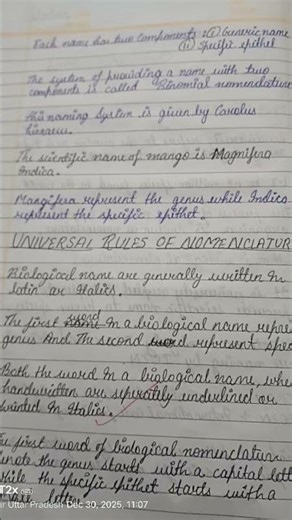 Each name has two components : (i) Generic name
(ii) Specific epithet
The system of providing a name with two
components is called Binomial nomenclature
This naming System is given by Carolus
linnaeus.
The scientific name of mango is Magnifera
Indica.
Mangifera represent the genus while Indica
represent the specific epithet.
UNIVERSAL RULES OF NOMENCLATUR
Biological name are generally written In
latin or Italics.
The first word In a biological name repre
genus And The second word represent spec
Both the word In a biological name, whe
handwritten are seperately underlined or
printed In Italics.
The first word of biological nomenclature
enote the genus starts with a capital lett
while the specific epithet starts with a
letter.
T2x
ar Uttar Pradesh Dec 30, 2025, 11:07